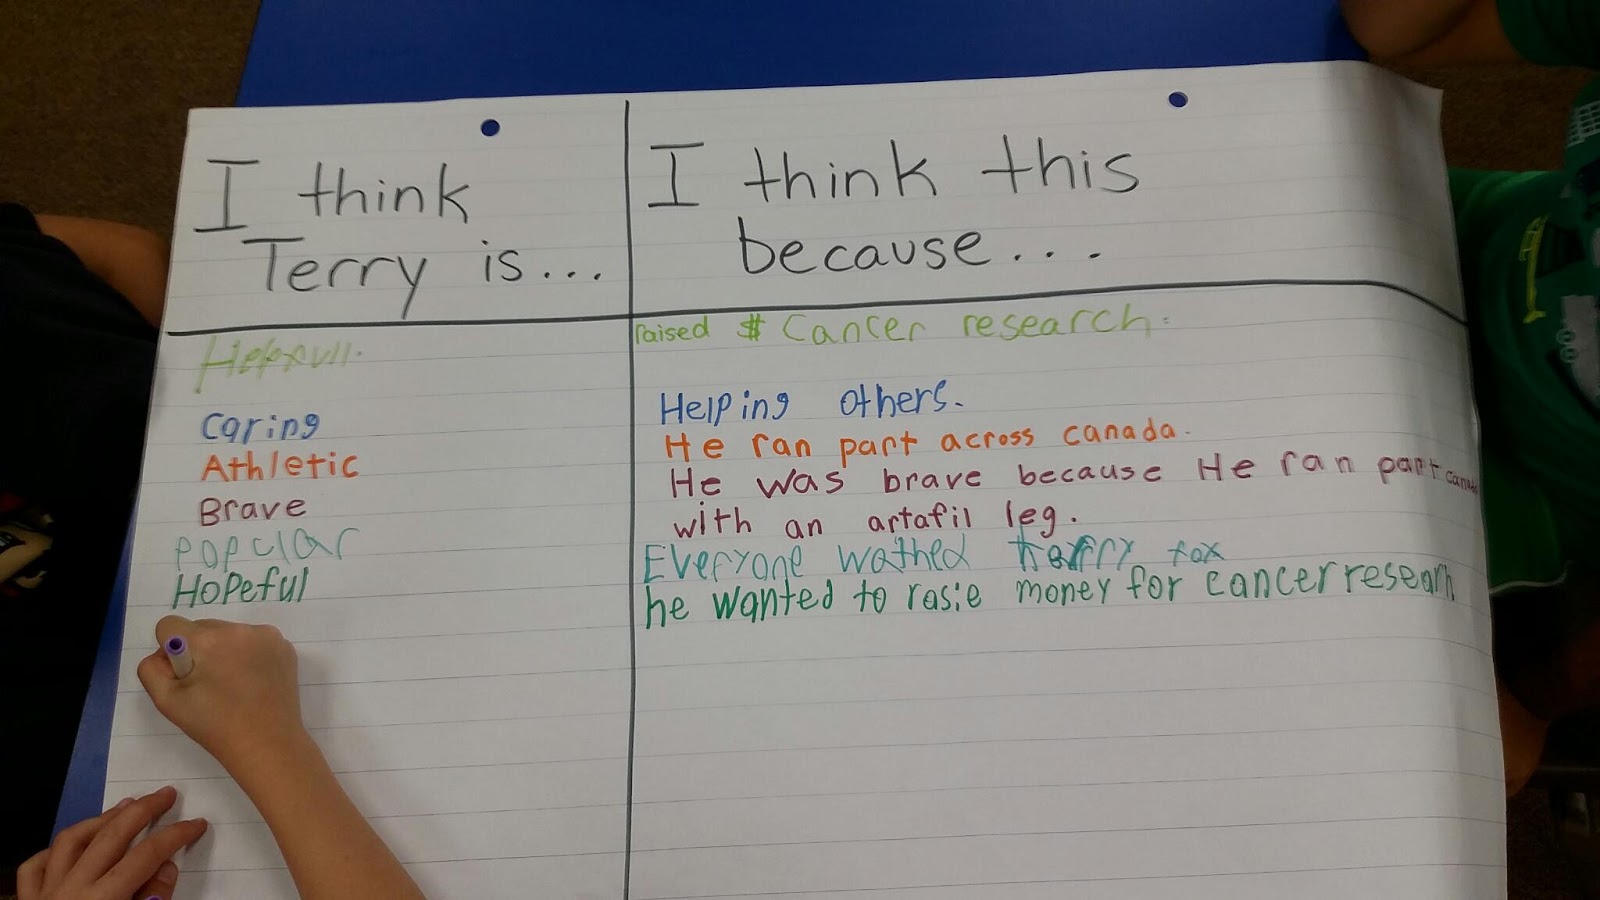 I think
Terry is...
I think this
because...
raised $ Cancer research.
Caring
Helping others.
Athletic
He ran part across canada.
Brave
He was brave because He ran part canada
with an artafil leg.
Popular
Everyone wathed terry fox
Hopeful
he wanted to rasie money for cancer research